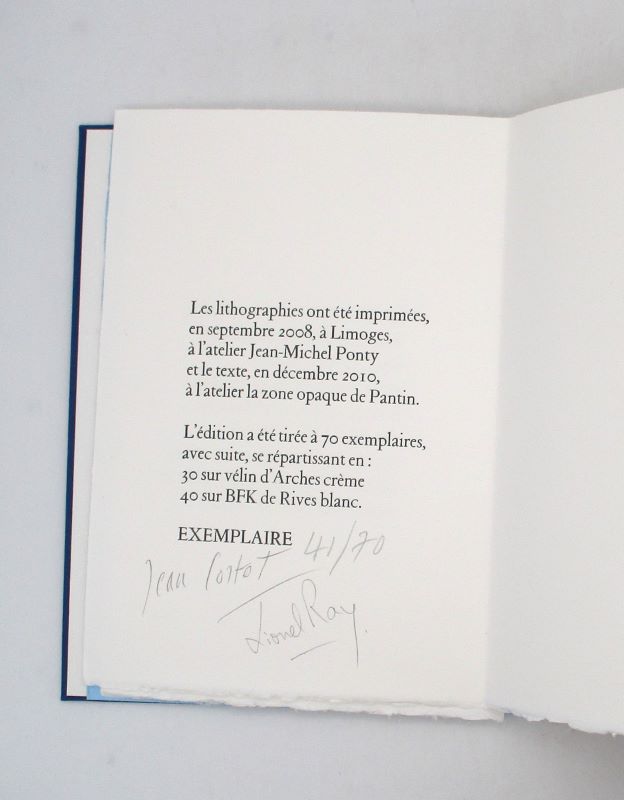 Les lithographies ont été imprimées,
en septembre 2008, à Limoges,
à l'atelier Jean-Michel Ponty
et le texte, en décembre 2010,
à l'atelier la zone opaque de Pantin.
L'édition a été tirée à 70 exemplaires,
avec suite, se répartissant en :
30 sur vélin d'Arches crème
40 sur BFK de Rives blanc.
EXEMPLAIRE 41/70
Jean Cortot
Lionel Ray.